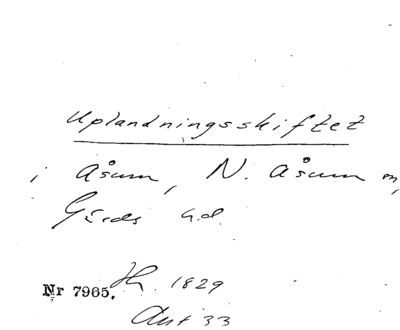 Uplandningsskiftet
i Åsum, N. Åsum sn,
Gärds h.d.
Nr 7965. 1829
Akt 33